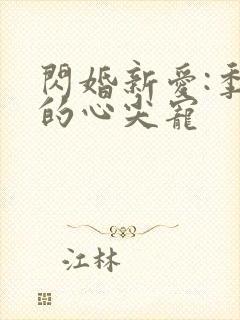 閃婚新愛:季
的心尖寵
江林